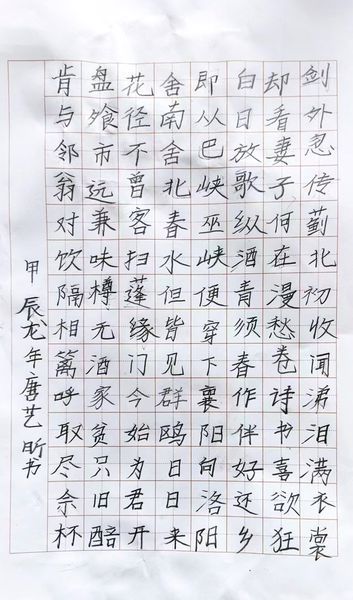 剑外忽传蓟北初收闻涕泪满衣裳
却看妻子何在漫愁卷诗书喜欲狂
白日放歌纵酒青须春作伴好还乡
即从巴峡巫峡便穿下襄阳向洛阳
舍南舍北春水但皆见群鸥日日来
花径不曾客扫蓬缘门今始为君开
盘飧市远兼味樽无酒家贫只旧醅
肯与邻翁对饮隔相篱呼取尽余杯
甲辰龙年唐艺昕书